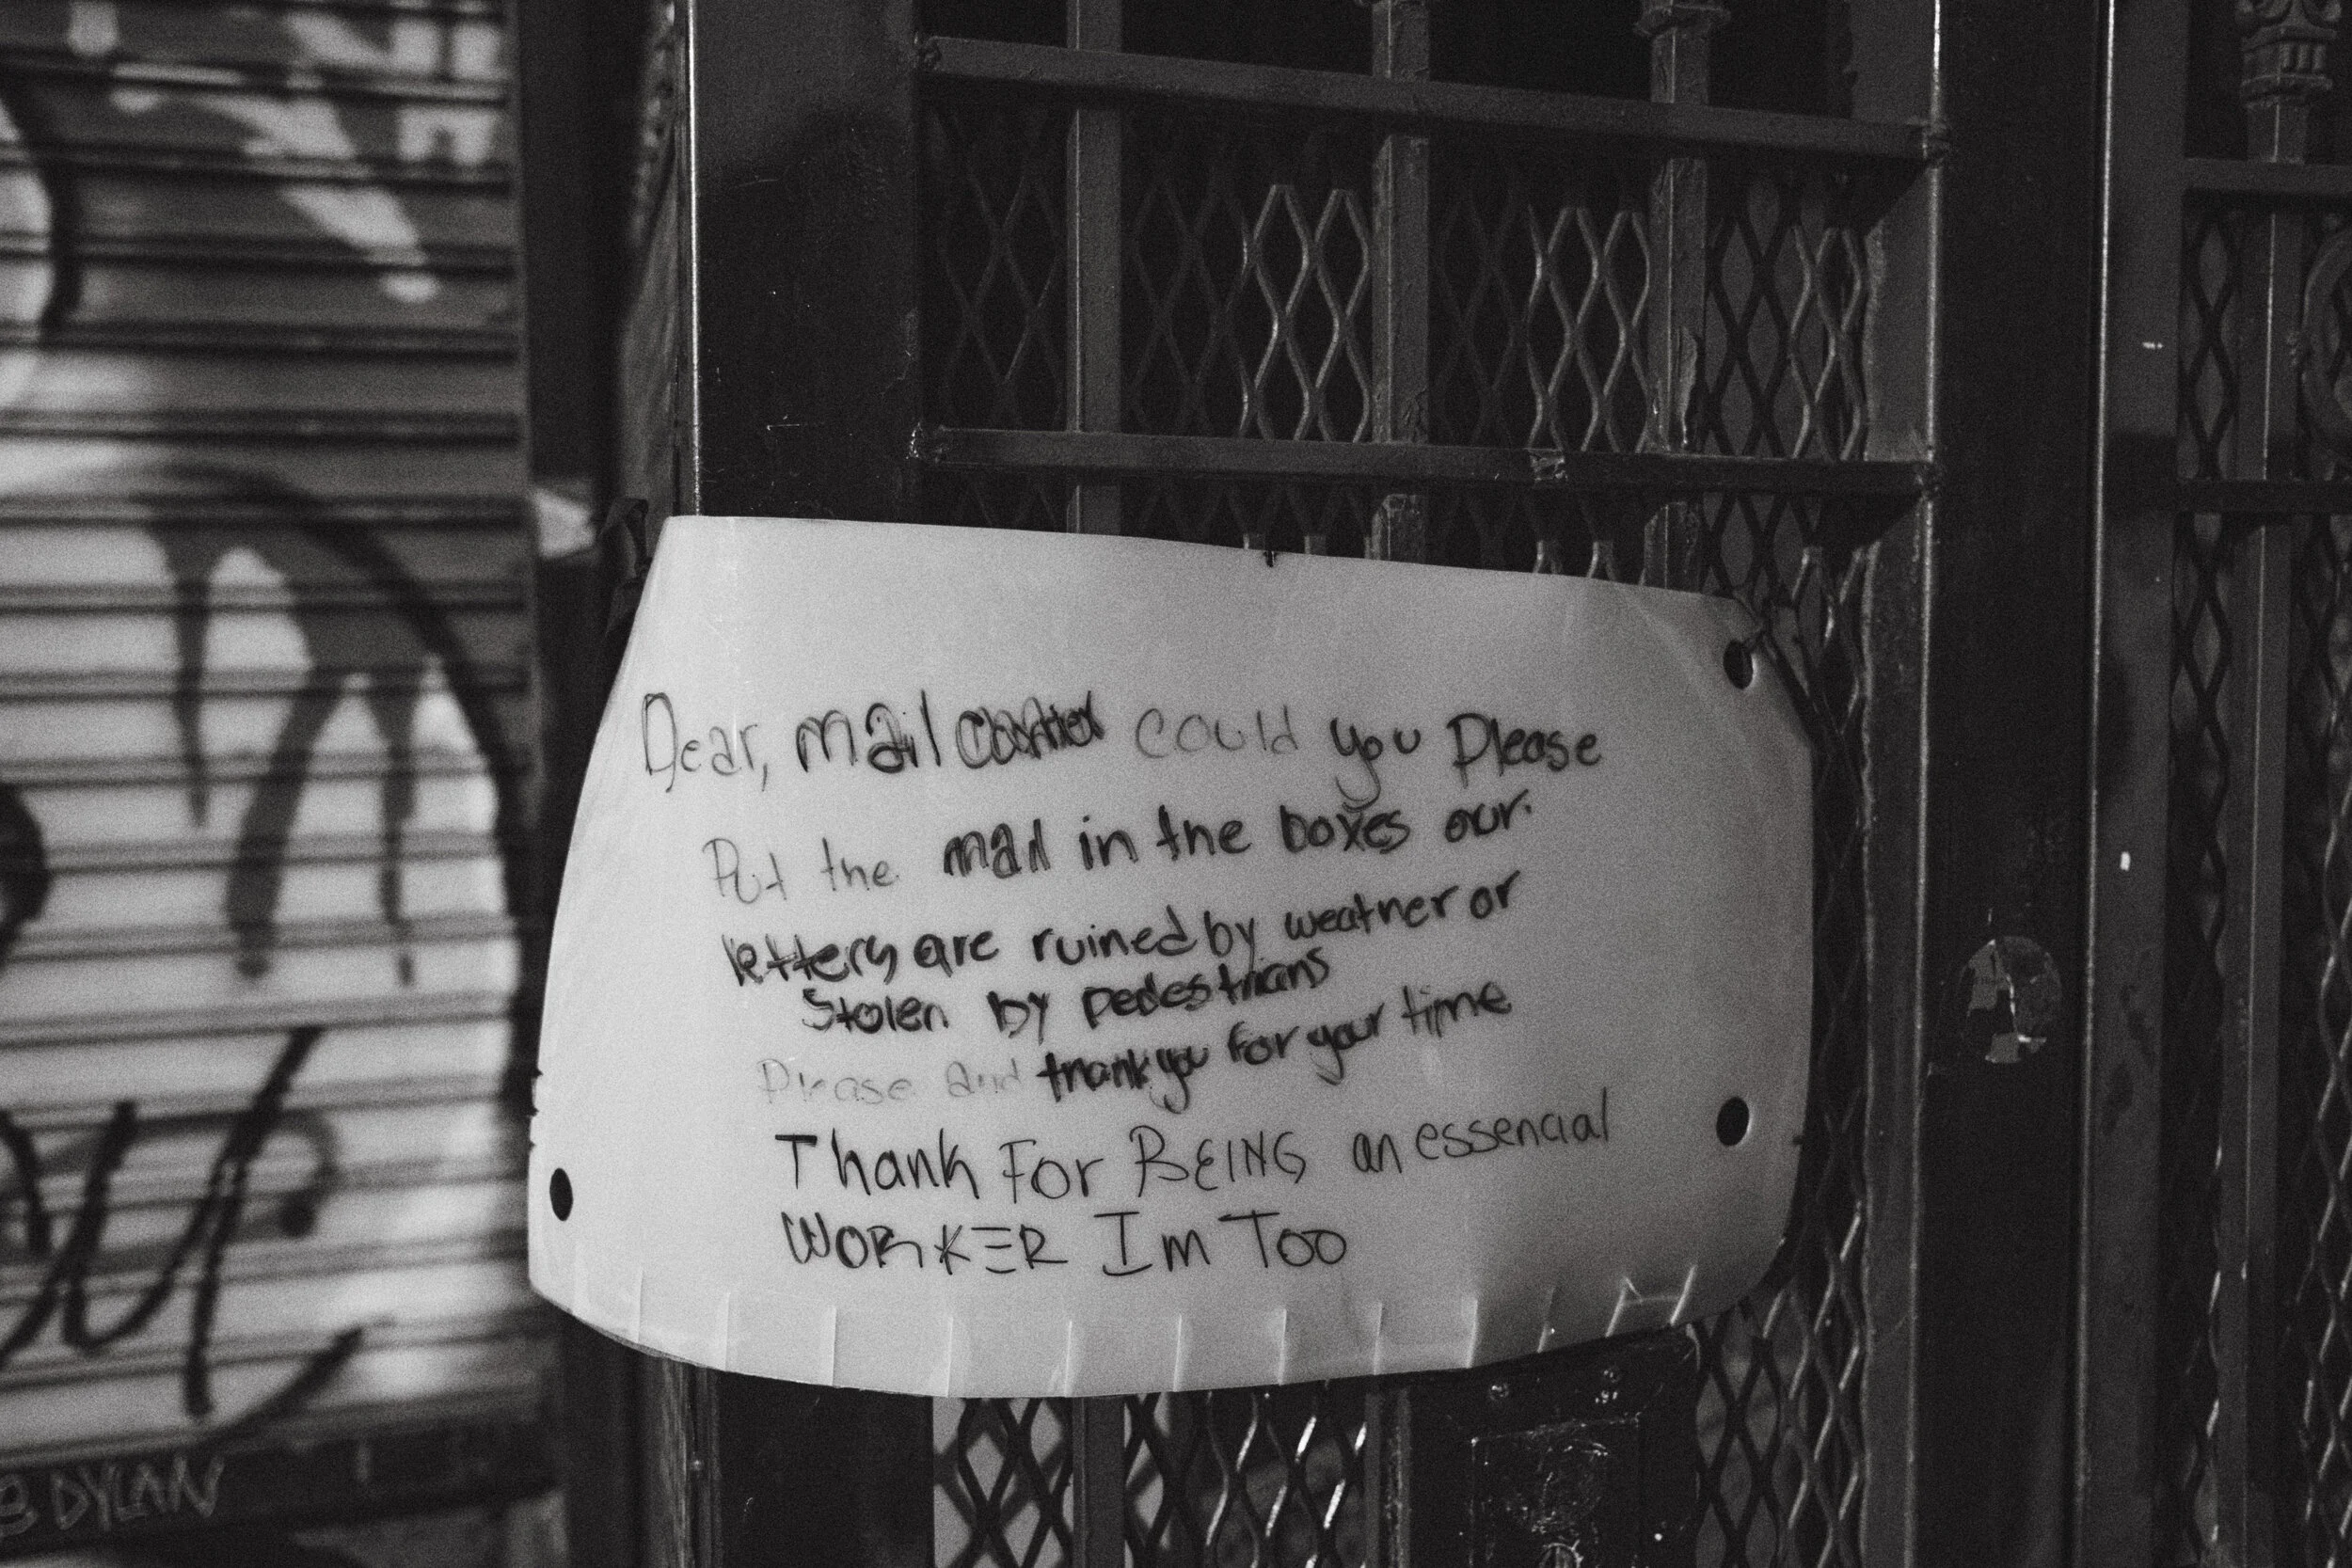 Dear, mail could you Please
Put the mail in the boxes our
letters are ruined by weather or
Stolen by pedestrians
Please and thank you for your time
Thank For BEING an essencial
WORKER Im Too
DYLAN